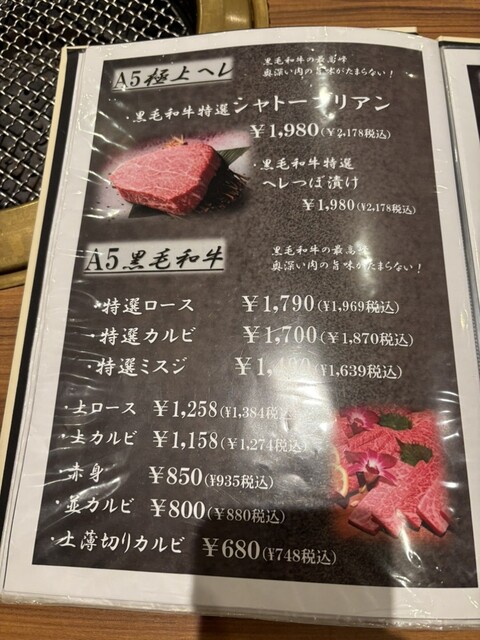 A5極上ヘレ
黒毛和牛の最高峰
奥深い肉の旨味がたまらない！
・黒毛和牛特選シャトーブリアン
￥1,980(￥2,178税込)
・黒毛和牛特選
ヘレつぼ漬け
￥1,980(￥2,178税込)
A5黒毛和牛
黒毛和牛の最高峰
奥深い肉の旨味がたまらない！
・特選ロース ￥1,790(￥1,969税込)
・特選カルビ ￥1,700(￥1,870税込)
・特選ミスジ ￥1,490(￥1,639税込)
・上ロース ￥1,258(￥1,384税込)
・上カルビ ￥1,158(￥1,274税込)
・赤身 ￥850(￥935税込)
・並カルビ ￥800(￥880税込)
・上薄切りカルビ ￥680(￥748税込)